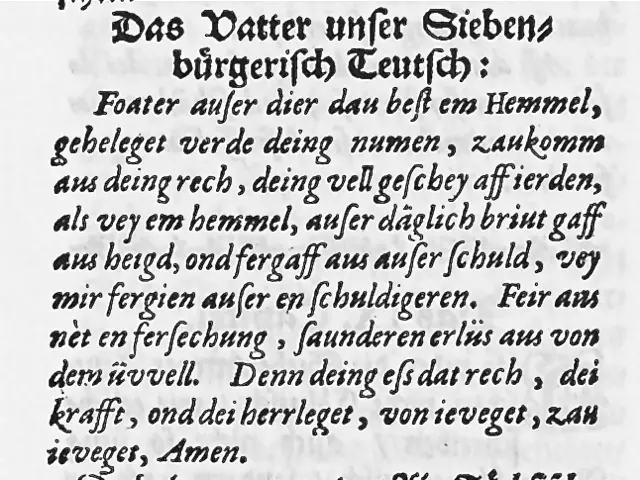 Das Vatter unſer Sieben⸗
bürgeriſch Teutſch:
Foater auſer dier dau beſt em Hemmel,
geheleget verde deing numen, zaukomm
aus deing rech, deing vell geſchey aff ierden,
als vey em hemmel, auſer däglich briut gaff
aus heigd, ond fergaff aus auſer ſchuld, vey
mir fergien auſer en ſchuldigeren. Feir aus
nèt en ferſechung, ſaunderen erlüs aus von
dem üvvell. Denn deing eſs dat rech, dei
krafft, ond dei herrleget, von ieveget, zau
ieveget, Amen.